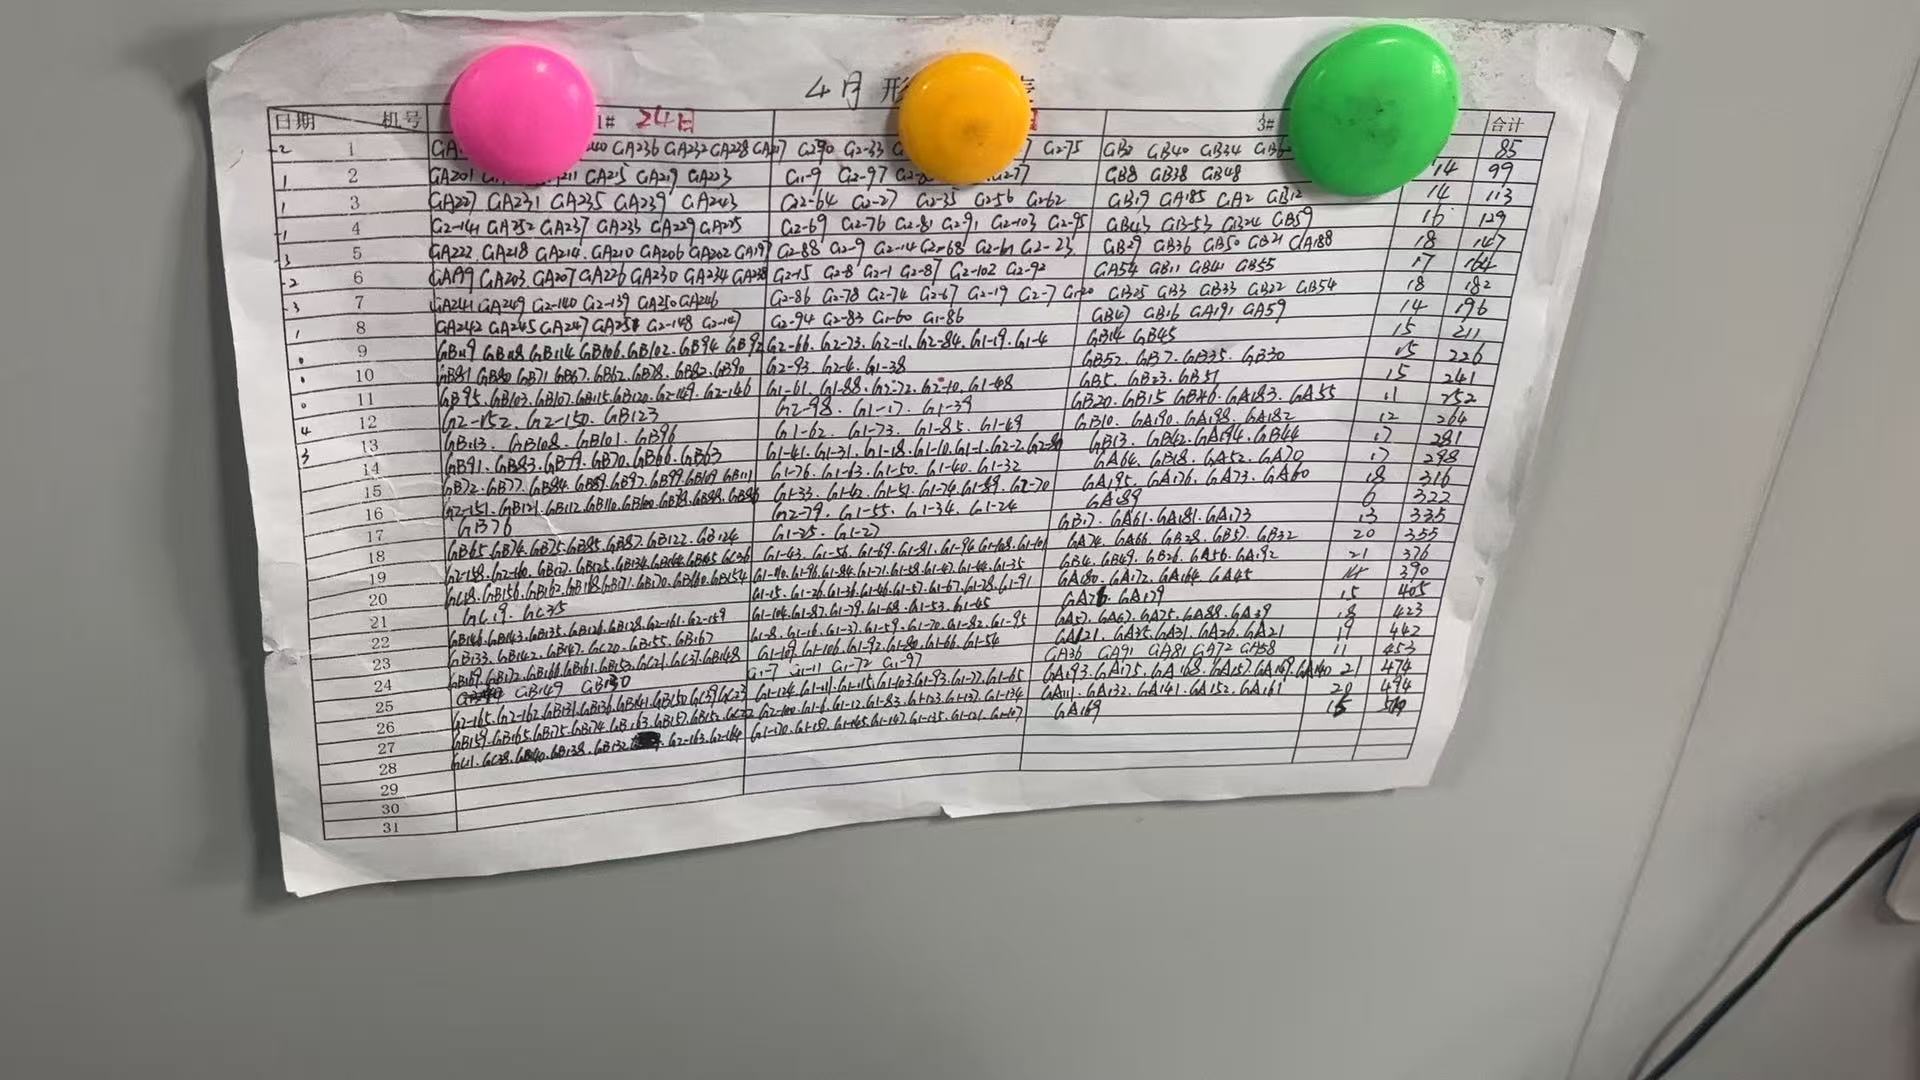 4月 形
日期 机号 1# 24日 3# 合计
-2 1 GA236 GA232 GA228 G290 G2-33 G2-75 GB2 GB40 GB34 85
1 2 GA201 GA215 GA219 GA223 G1-9 G2-97 GB8 GB38 GB48 14 99
1 3 GA227 GA231 GA235 GA239 GA243 G2-64 G2-27 G2-35 G2-56 G2-62 GB19 GA185 GA2 GB12 14 113
-1 4 G2-141 GA252 GA237 GA233 GA229 GA225 G2-69 G2-76 G2-81 G2-91 G2-103 G2-95 GB43 GB-53 GB24 GB59 16 129
-3 5 GA222 GA218 GA214 GA210 GA206 GA202 GA197 G2-88 G2-9 G2-14 G2-68 G2-61 G2-23 GB29 GB36 GB50 GB21 GA188 18 147
-2 6 GA199 GA203 GA207 GA226 GA230 GA234 GA238 G2-15 G2-8 G2-1 G2-87 G2-102 G2-92 GA54 GB11 GB41 GB55 17 164
-3 7 GA241 GA249 G2-140 G2-139 GA250 GA246 G2-86 G2-78 G2-74 G2-67 G2-19 G2-7 GB25 GB3 GB33 GB22 GB54 18 182
1 8 GA242 GA245 GA247 GA251 G2-148 G2-147 G2-94 G2-83 G1-60 G1-86 GB47 GB16 GA191 GA59 14 196
0 9 GB119 GB118 GB114 GB106 GB102 GB94 GB92 G2-66 G2-73 G2-11 G2-84 G1-19 G1-4 GB14 GB45 15 211
0 10 GB81 GB80 GB71 GB67 GB62 GB78 GB82 GB90 G2-93 G2-4 G1-38 GB52 GB7 GB35 GB30 15 226
0 11 GB95 GB103 GB107 GB115 GB120 G2-149 G2-146 G1-61 G1-88 G2-72 G2-10 G1-48 GB5 GB23 GB51 15 241
4 12 G2-152 G2-150 GB123 G2-98 G1-17 G1-39 GB20 GB15 GB46 GA183 GA55 11 252
3 13 GB113 GB108 GB101 GB96 G1-62 G1-73 G1-85 G1-49 GB10 GA190 GA198 GA182 12 264
14 GB91 GB83 GB79 GB70 GB66 GB63 G1-41 G1-31 G1-18 G1-10 G1-1 G2-2 G2-80 GB13 GB42 GA194 GB44 17 281
15 GB72 GB77 GB84 GB89 GB97 GB99 GB109 GB111 G1-76 G1-63 G1-50 G1-40 G1-32 GA64 GB18 GA52 GA70 17 298
16 G2-151 GB121 GB112 GB110 GB100 GB98 GB88 GB86 G1-33 G1-42 G1-51 G1-74 G1-89 G2-70 GA195 GA176 GA73 GA60 18 316
17 GB76 G2-79 G1-55 G1-34 G1-24 GA189 6 322
18 GB65 GB74 GB75 GB85 GB87 GB122 GB124 G1-25 G1-27 GB17 GA61 GA181 GA173 13 335
19 G2-158 G2-160 GB127 GB125 GB134 GB144 GB145 GC36 G1-43 G1-56 G1-69 G1-81 G1-94 G1-108 G1-101 GA74 GA66 GB28 GB57 GB32 20 355
20 GC18 GB156 GB162 GB168 GB171 GB170 GB160 GB154 G1-110 G1-96 G1-84 G1-71 G1-58 G1-47 G1-44 G1-35 GB4 GB49 GB26 GA56 GA192 21 376
21 GC19 GC35 G1-15 G1-26 G1-36 G1-46 G1-57 G1-67 G1-78 G1-91 GA180 GA172 GA164 GA45 14 390
22 GB146 GB143 GB135 GB126 GB128 G2-161 G2-159 G1-104 G1-87 G1-79 G1-68 G1-53 G1-45 GA76 GA179 15 405
23 GB133 GB142 GB147 GC20 GB155 GB167 G1-8 G1-16 G1-37 G1-59 G1-70 G1-82 G1-95 GA57 GA67 GA75 GA88 GA39 18 423
24 GB169 GB172 GB166 GB161 GB153 GC21 GC37 GB148 G1-109 G1-106 G1-92 G1-80 G1-66 G1-54 GA121 GA35 GA31 GA26 GA21 19 442
25 GB149 GB130 G1-7 G1-11 G1-72 G1-97 GA36 GA91 GA81 GA72 GA58 11 453
26 G2-165 G2-162 GB131 GB136 GB141 GB150 GC39 GC23 G1-124 G1-111 G1-115 G1-103 G1-93 G1-77 G1-65 GA193 GA175 GA168 GA157 GA149 GA140 21 474
27 GB159 GB165 GB175 GB174 GB163 GB157 GB152 GC22 G2-100 G1-6 G1-12 G1-83 G1-123 G1-132 G1-134 GA111 GA132 GA141 GA152 GA161 20 494
28 GC1 GC38 GB140 GB138 GB132 G2-163 G2-164 G1-170 G1-157 G1-145 G1-147 G1-135 G1-121 G1-107 GA169 15
29
30
31